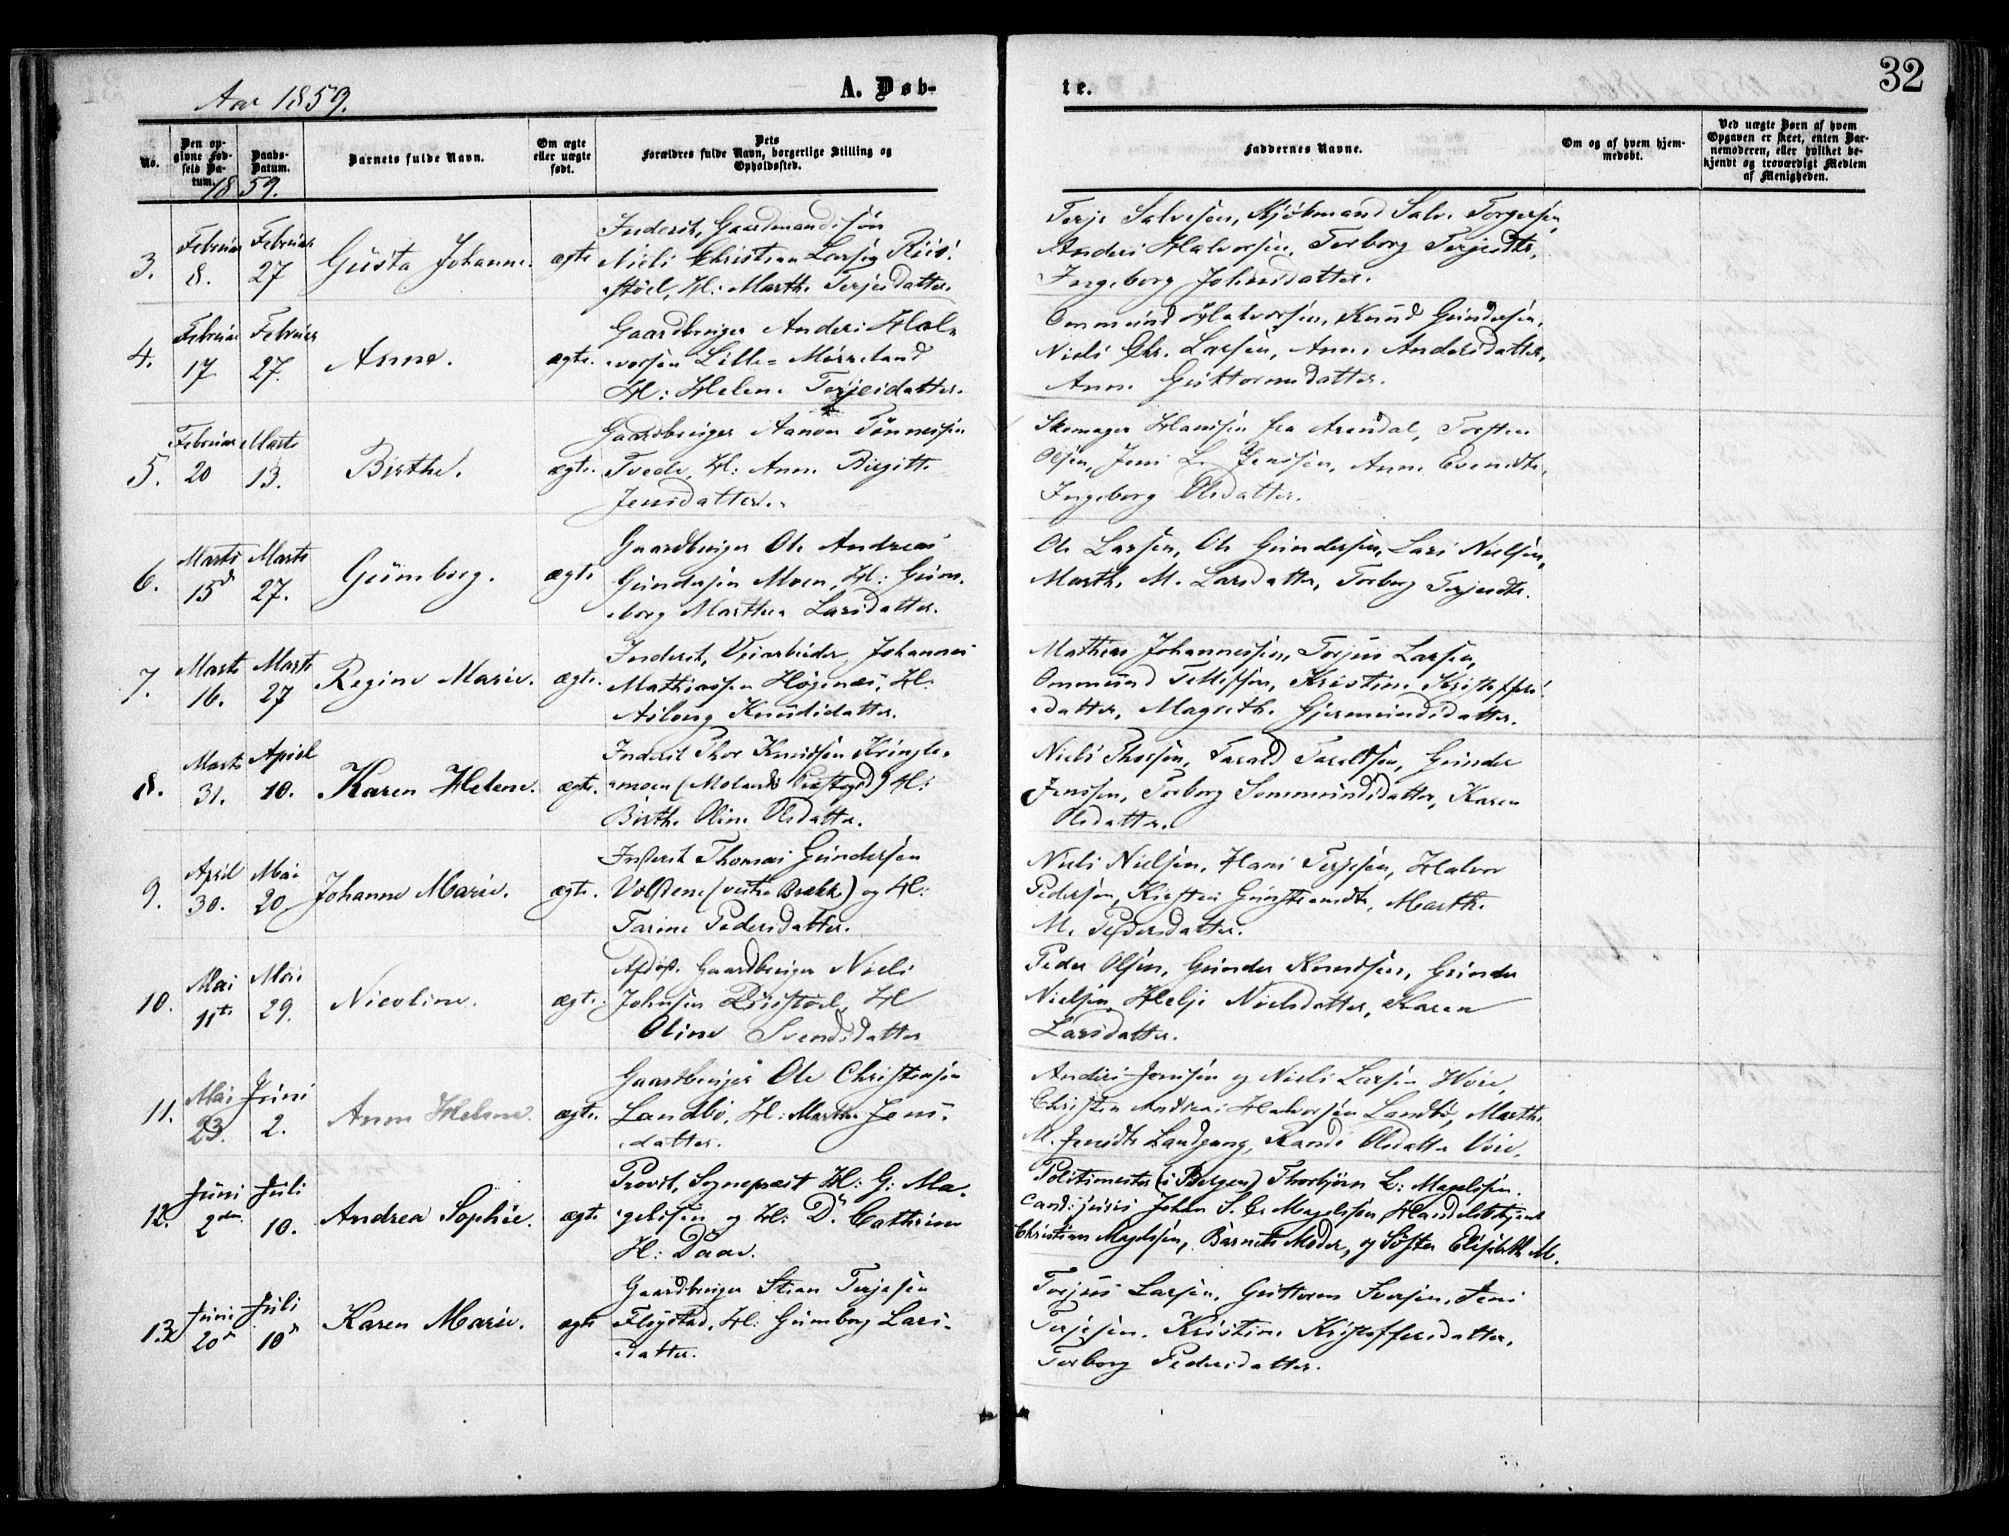 32
Aar 1859.
A. Døb-
te.
No.
Den opgivne Fødsels Datum.
Daabs-Datum.
Barnets fulde Navn.
Om ægte eller uægte født.
Dets Forældres fulde Navn, borgerlige Stilling og Opholdssted.
Faddernes Navne.
Om og af hvem hjemmedøbt.
Ved uægte Børn af hvem Opgaven er skeet, enten Barnemoderen, eller hvilket bekjendt og troværdigt Medlem af Menigheden.
1859.
3. Februar 8. Februar 27 Gusta Johanne. ægte
Inderst, Gaardmandssøn
Niels Christian Larsen
H: Marthe Terjesdatter.
Terje Salvesen, Kjøbmand Salve Torgersen,
Anders Halvorsen, Torborg Terjesdtr,
Ingeborg Johnsdatter.
4. Februar 17 Februar 27. Anne. ægte.
Gaardbruger Anders Hal-
vorsen Lille-Mørreland
H: Helene Terjesdatter.
Ommund Halvorsen, Knud Gundersen,
Niels Chr. Larsen, Anne Andersdatter,
Anne Guttormsdatter.
5. Februar 20 Marts 13. Birthe. ægte.
Gaardbruger Aanon Tønnesen
Tvede, H: Anne Birgitte
Jensdatter.
Skomager Hansen fra Arendal, Torsten
Olsen, Jens L. Jensen, Anne Evensdtr,
Ingeborg Olsdatter.
6. Marts 15de Marts 27. Gumborg. ægte
Gaardbruger Ole Andreas
Gundersen Moen, H: Gum-
borg Marthea Larsdatter.
Ole Larsen, Ole Gundersen, Lars Nielsen,
Marthe M. Larsdatter, Torborg Terjesdtr.
7. Marts 16. Marts 27 Regine Marie. ægte.
Inderst, Veiarbeider, Johannes
Mathiassen Høgenæs, H:
Aslaug Knudsdatter.
Mathias Johannessen, Torjus Larsen,
Ommund Tellefsen, Kristine Kristoffers-
datter, Magrethe Gjermundsdatter.
8. Marts 31. April 10. Karen Helene. ægte.
Inderst Thor Knudsen Kringle-
moen (Molands Præstegd) H:
Birthe Oline Olsdatter.
Niels Thorsen, Tarald Taraldsen, Gunder
Jensen, Torborg Sommundsdatter, Karen
Olsdatter.
9. April 30. Mai 20 Johanne Marie. ægte.
Inderst Thomas Gundersen
(vestre Brække) og H:
Tarine Pedersdatter.
Niels Nielsen, Hans Terjesen, Halvor
Pedersen, Kirsten Marthe
M. Pedersdatter.
10. Mai 11te Mai 29. Nicoline. ægte.
Afdøde Gaardbruger Niels
Johnsen H
Oline Svendsdatter
Peder Olsen, Gunder Knudsen, Gunder
Nielsen, Helje Nielsdatter, Karen
Larsdatter.
11. Mai 23. Juni 2. Anne Helene. ægte.
Gaardbruger Ole Christensen
Landbø, H: Marthe Jens-
datter.
Anders Jensen og Niels Larsen
Christen Andreas Halvorsen Landbø, Marthe
M. Jensdtr Landgang, Rande Olsdatter
12. Juni 2den Juli 10. Andrea Sophie. ægte
Provst, Sognepræst H: G: Ma-
gelssen og H: D. Cathrine
H: Daae.
Politimester (i Bergen) Thorbjørn L: Magelssen.
Cand: juris Johan S. C. Magelssen, Handelsbetjent
Christian Magelssen, Barnets Moder, og Søster Elisabeth M.
13 Juni 20de Juli 10de Karen Marie. ægte
Gaardbruger Stian Terjesen
Fløistad, H: Gumborg Lars-
datter.
Torjus Larsen, Guttorm Iversen, Jens
Terjesen, Kristine Kristoffersdatter,
Torborg Pedersdatter.